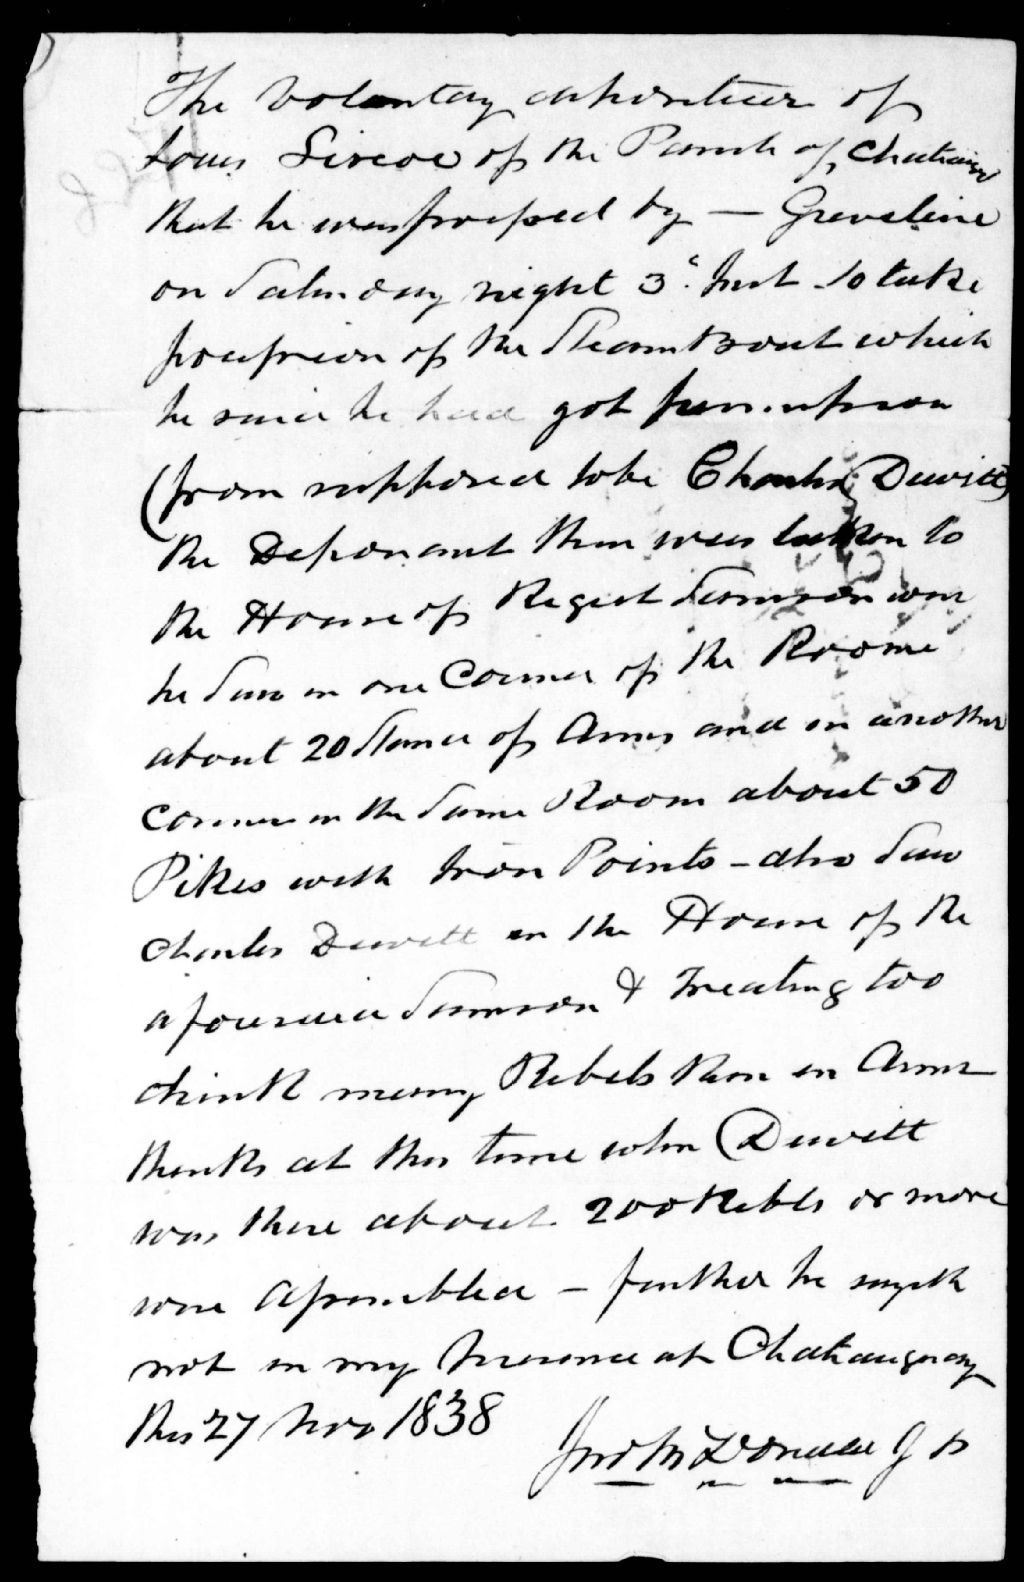 The Voluntary deposition of
Louis Sircoe of the Parish of Chateaug
that he was pressed by — Graveline
on Saturday night 3d. Inst to take
possession of the Steam Boat which
he said he had got permission
(from supposed to be Charles Dewitt)
the Deponant then was taken to
the House of Regest Samson
he Saw in one Corner of the Roome
about 20 Stand of Arms and in another
Corner in the Same Room about 50
Pikes with Iron Points – also Saw
Charles Dewitt in the House of the
aforesaid Samson & Treating too
drink many Rebels then in Arms
thinks at this time when Dewitt
was there about 200 Rebels or more
were Assembled – further he sayeth
not in my Presence at Chataugnay
this 27 Nov 1838
Jno McDonald J P